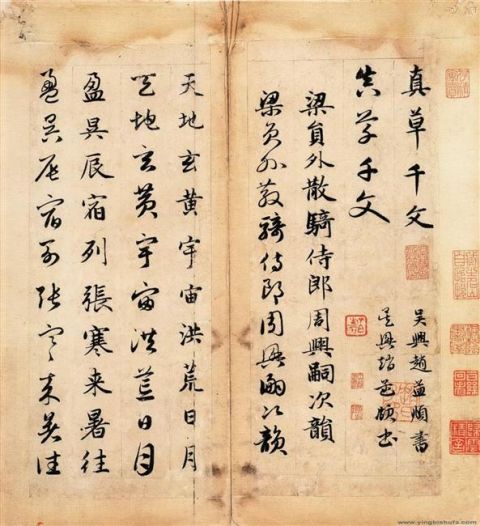 真草千文
真草千文
吴興趙孟頫書
吴興趙孟頫書
梁員外散騎侍郎周興嗣次韻
梁員外散騎侍郎周興嗣次韻
天地玄黄宇宙洪荒日月
天地玄黄宇宙洪荒日月
盈昃辰宿列張寒来暑往
盈昃辰宿列張寒来暑往
www.yingbishufa.com